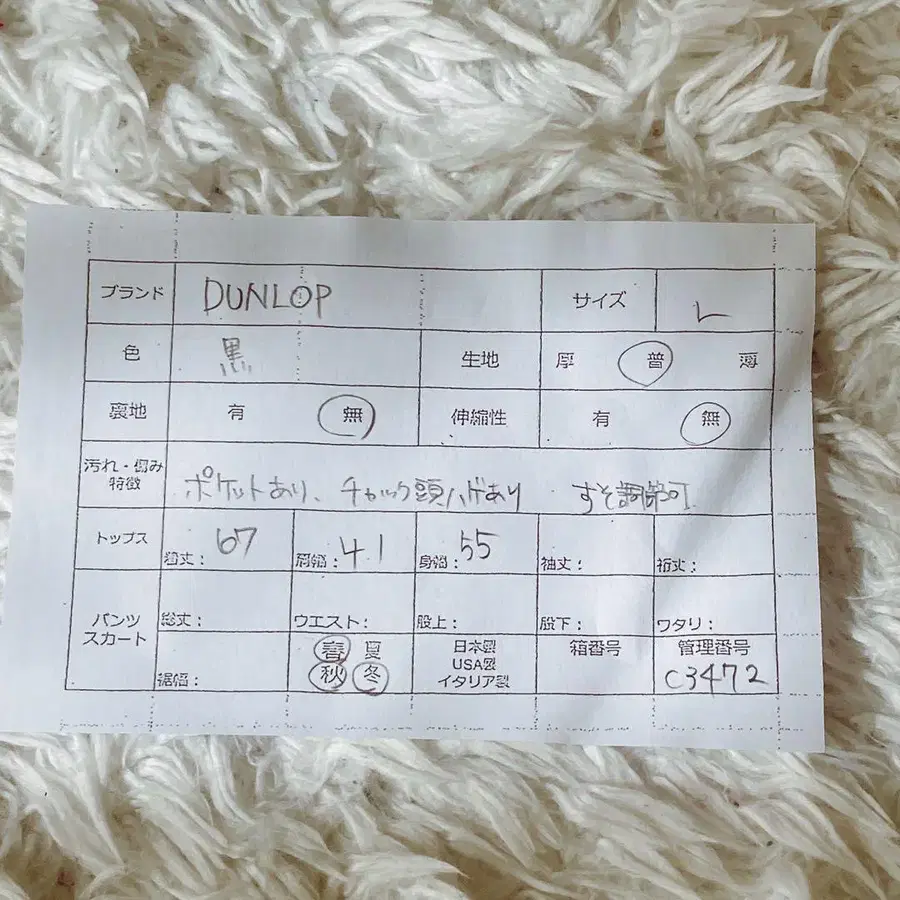 ブランド DUNLOP サイズ L
色 黒 生地 厚 普 薄
裏地 有 無 伸縮性 有 無
汚れ・傷み
特徴 ポケットあり、チャック頭ハゲあり すそ調節可
トップス 着丈: 67 肩幅: 41 身幅: 55 袖丈: 裄丈:
パンツ
スカート 総丈: ウエスト: 股上: 股下: ワタリ:
裾幅: 春 夏
秋 冬
日本製
USA製
イタリア製
箱番号
管理番号
C3472